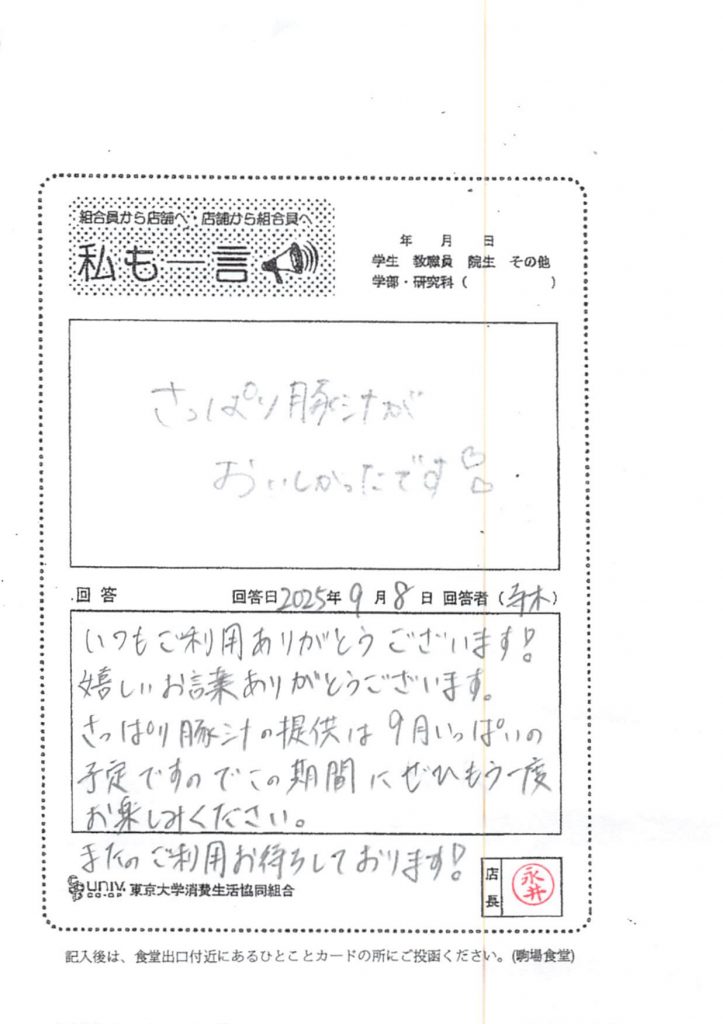 組合員から店舗へ・店舗から組合員へ
私も一言
年 月 日
学生 教職員 院生 その他
学部・研究科( )
さっぱり豚汁が
おいしかったです
回答 回答日2025年9月8日 回答者(寺木)
いつもご利用ありがとうございます!
嬉しいお言葉ありがとうございます。
さっぱり豚汁の提供は9月いっぱいの
予定ですのでこの期間にぜひもう一度
お楽しみください。
またのご利用お待ちしております!
univ. CO-OP 東京大学消費生活協同組合
店長
永井
記入後は、食堂出口付近にあるひとことカードの所にご投函ください。(駒場食堂)